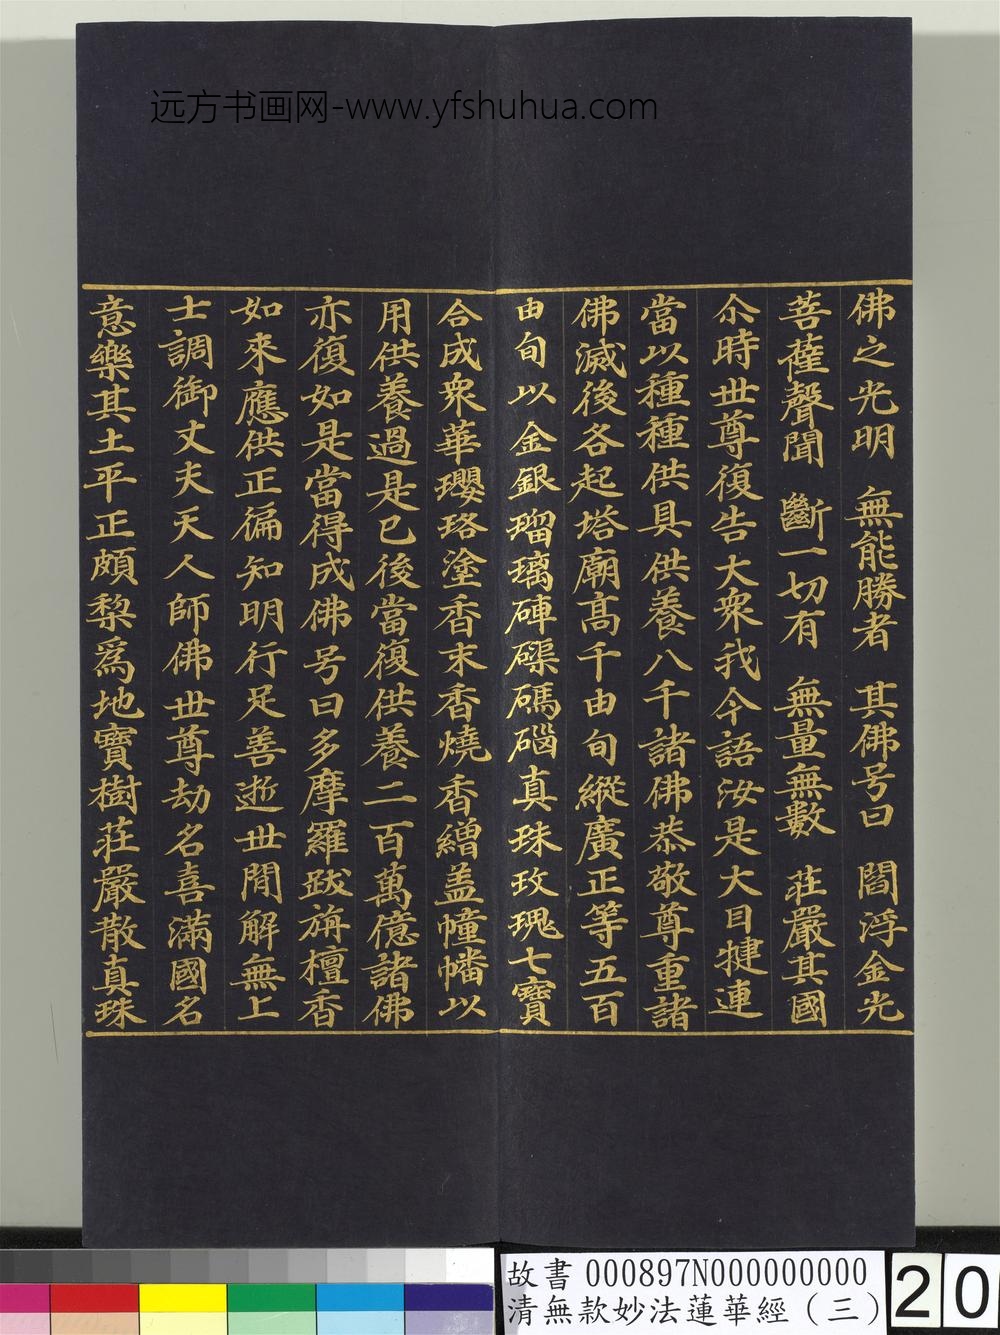 远方书画网-www.yfshuhua.com
佛之光明　無能勝者　其佛号曰　閻浮金光
菩薩聲聞　斷一切有　無量無數　莊嚴其國
尒時世尊復告大衆我今語汝是大目揵連
當以種種供具供養八千諸佛恭敬尊重諸
佛滅後各起塔廟髙千由旬縱廣正等五百
由旬以金銀瑠璃硨磲碼碯真珠玫瑰七寶
合成衆華瓔珞塗香末香燒香繒盖幢幡以
用供養過是已後當復供養二百萬億諸佛
亦復如是當得成佛号曰多摩羅跋旃檀香
如來應供正徧知明行足善逝世閒解無上
士調御丈夫天人師佛世尊劫名喜滿國名
意樂其土平正頗棃爲地寶樹莊嚴散真珠
故書 000897N000000000
清無款妙法蓮華經（三）
20